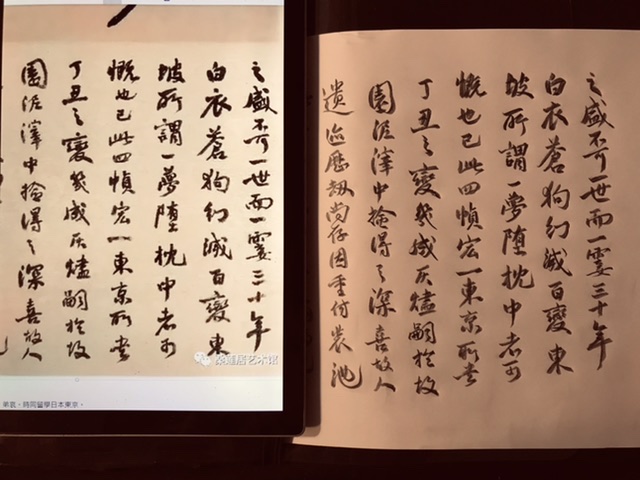 之盛不可一世而一霎三十年
白衣蒼狗幻滅百變東
坡所謂一夢墮枕中者可
慨也已此四幀宏一東京所書
丁丑之變幾成灰燼嗣於故
園泥滓中撿得之深喜故人
蓮居艺术馆
弟哀,時同留學日本東京。
之盛不可一世而一霎三十年
白衣蒼狗幻滅百變東
坡所謂一夢墮枕中者可
慨也已此四幀宏一東京所書
丁丑之變幾成灰燼嗣於故
園泥滓中撿得之深喜故人
遺迹歷劫尚存因重付裝池